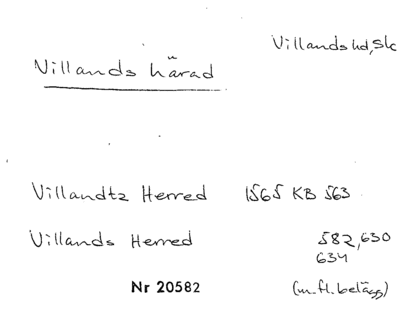 Villands hd, Sk
Villands härad
Villandtz Herred 1565 KB 563
Villands Herred 582, 630
634
Nr 20582 (m.fl. belägg)